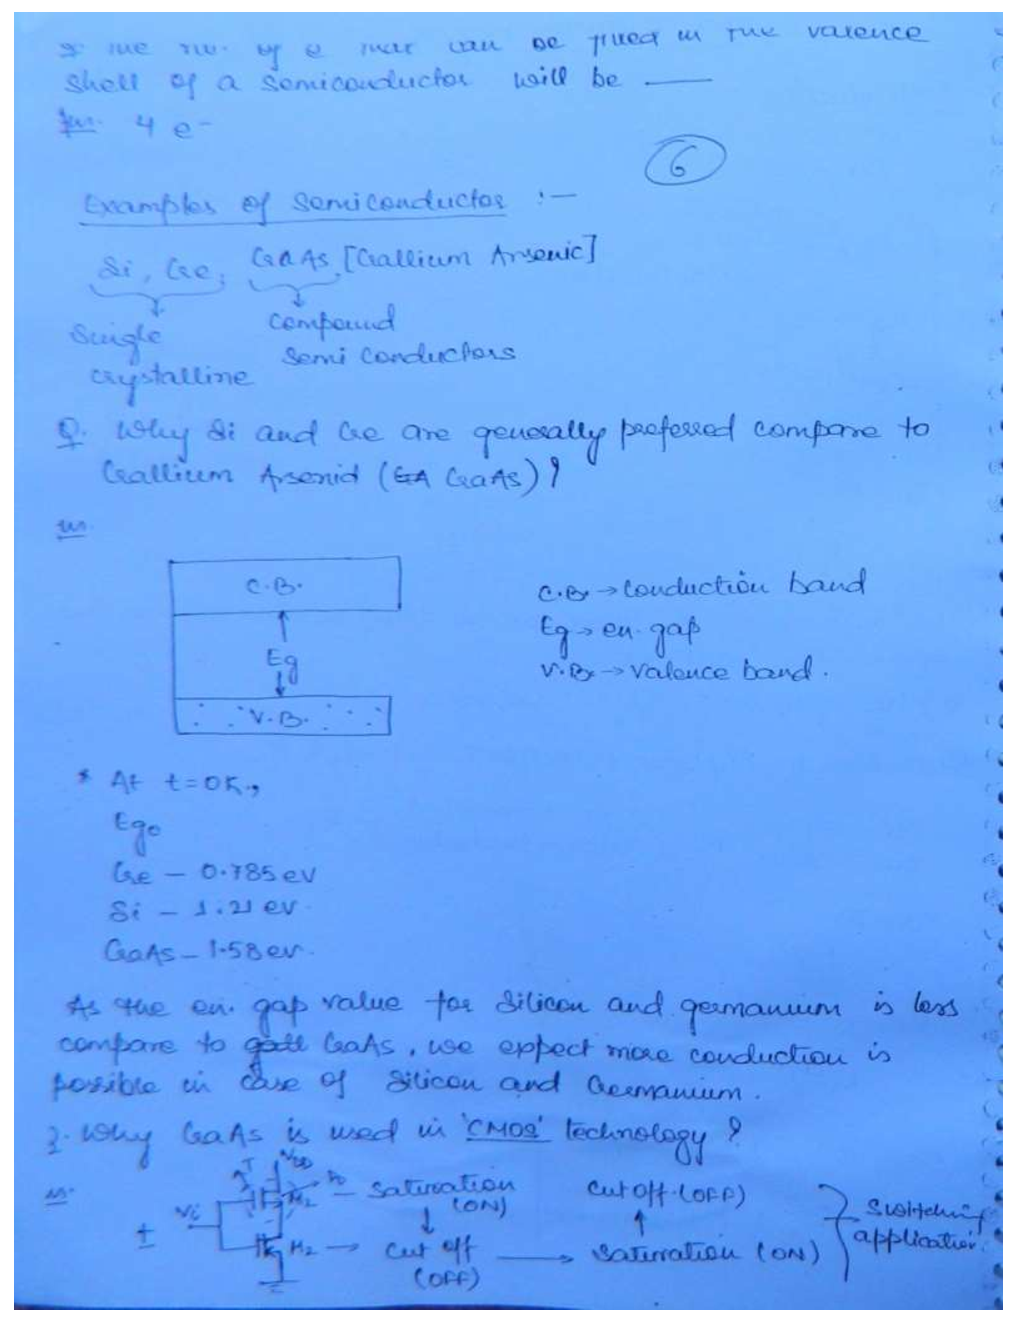 of e that can be filled in the valence
shell of a semiconductor will be ___
Ans. 4 e-
6
Examples of Semiconductor :-
Si, Ge, GaAs [Gallium Arsenic]
Single crystalline
Compound Semi conductors
Q. Why Si and Ge are generally prefered compare to
Gallium Arsenid (GaAs)?
Ans.
C.B.
Eg
V.B.
C.B. → Conduction band
Eg → en. gap
V.B. → Valence band.
* At t=0K.,
Eg0
Ge – 0.785 ev
Si – 1.21 ev.
GaAs – 1.58 ev.
As the en. gap value for Silicon and germanium is less
compare to GaAs, we expect more conduction is
possible in case of Silicon and Germanium.
Q. Why GaAs is used in 'CMOS' technology?
Ans.
VDD
Vi
M2 – Saturation (ON)
Cut off. (OFF)
M2 → Cut off (OFF) → Saturation (ON)
Switching application.